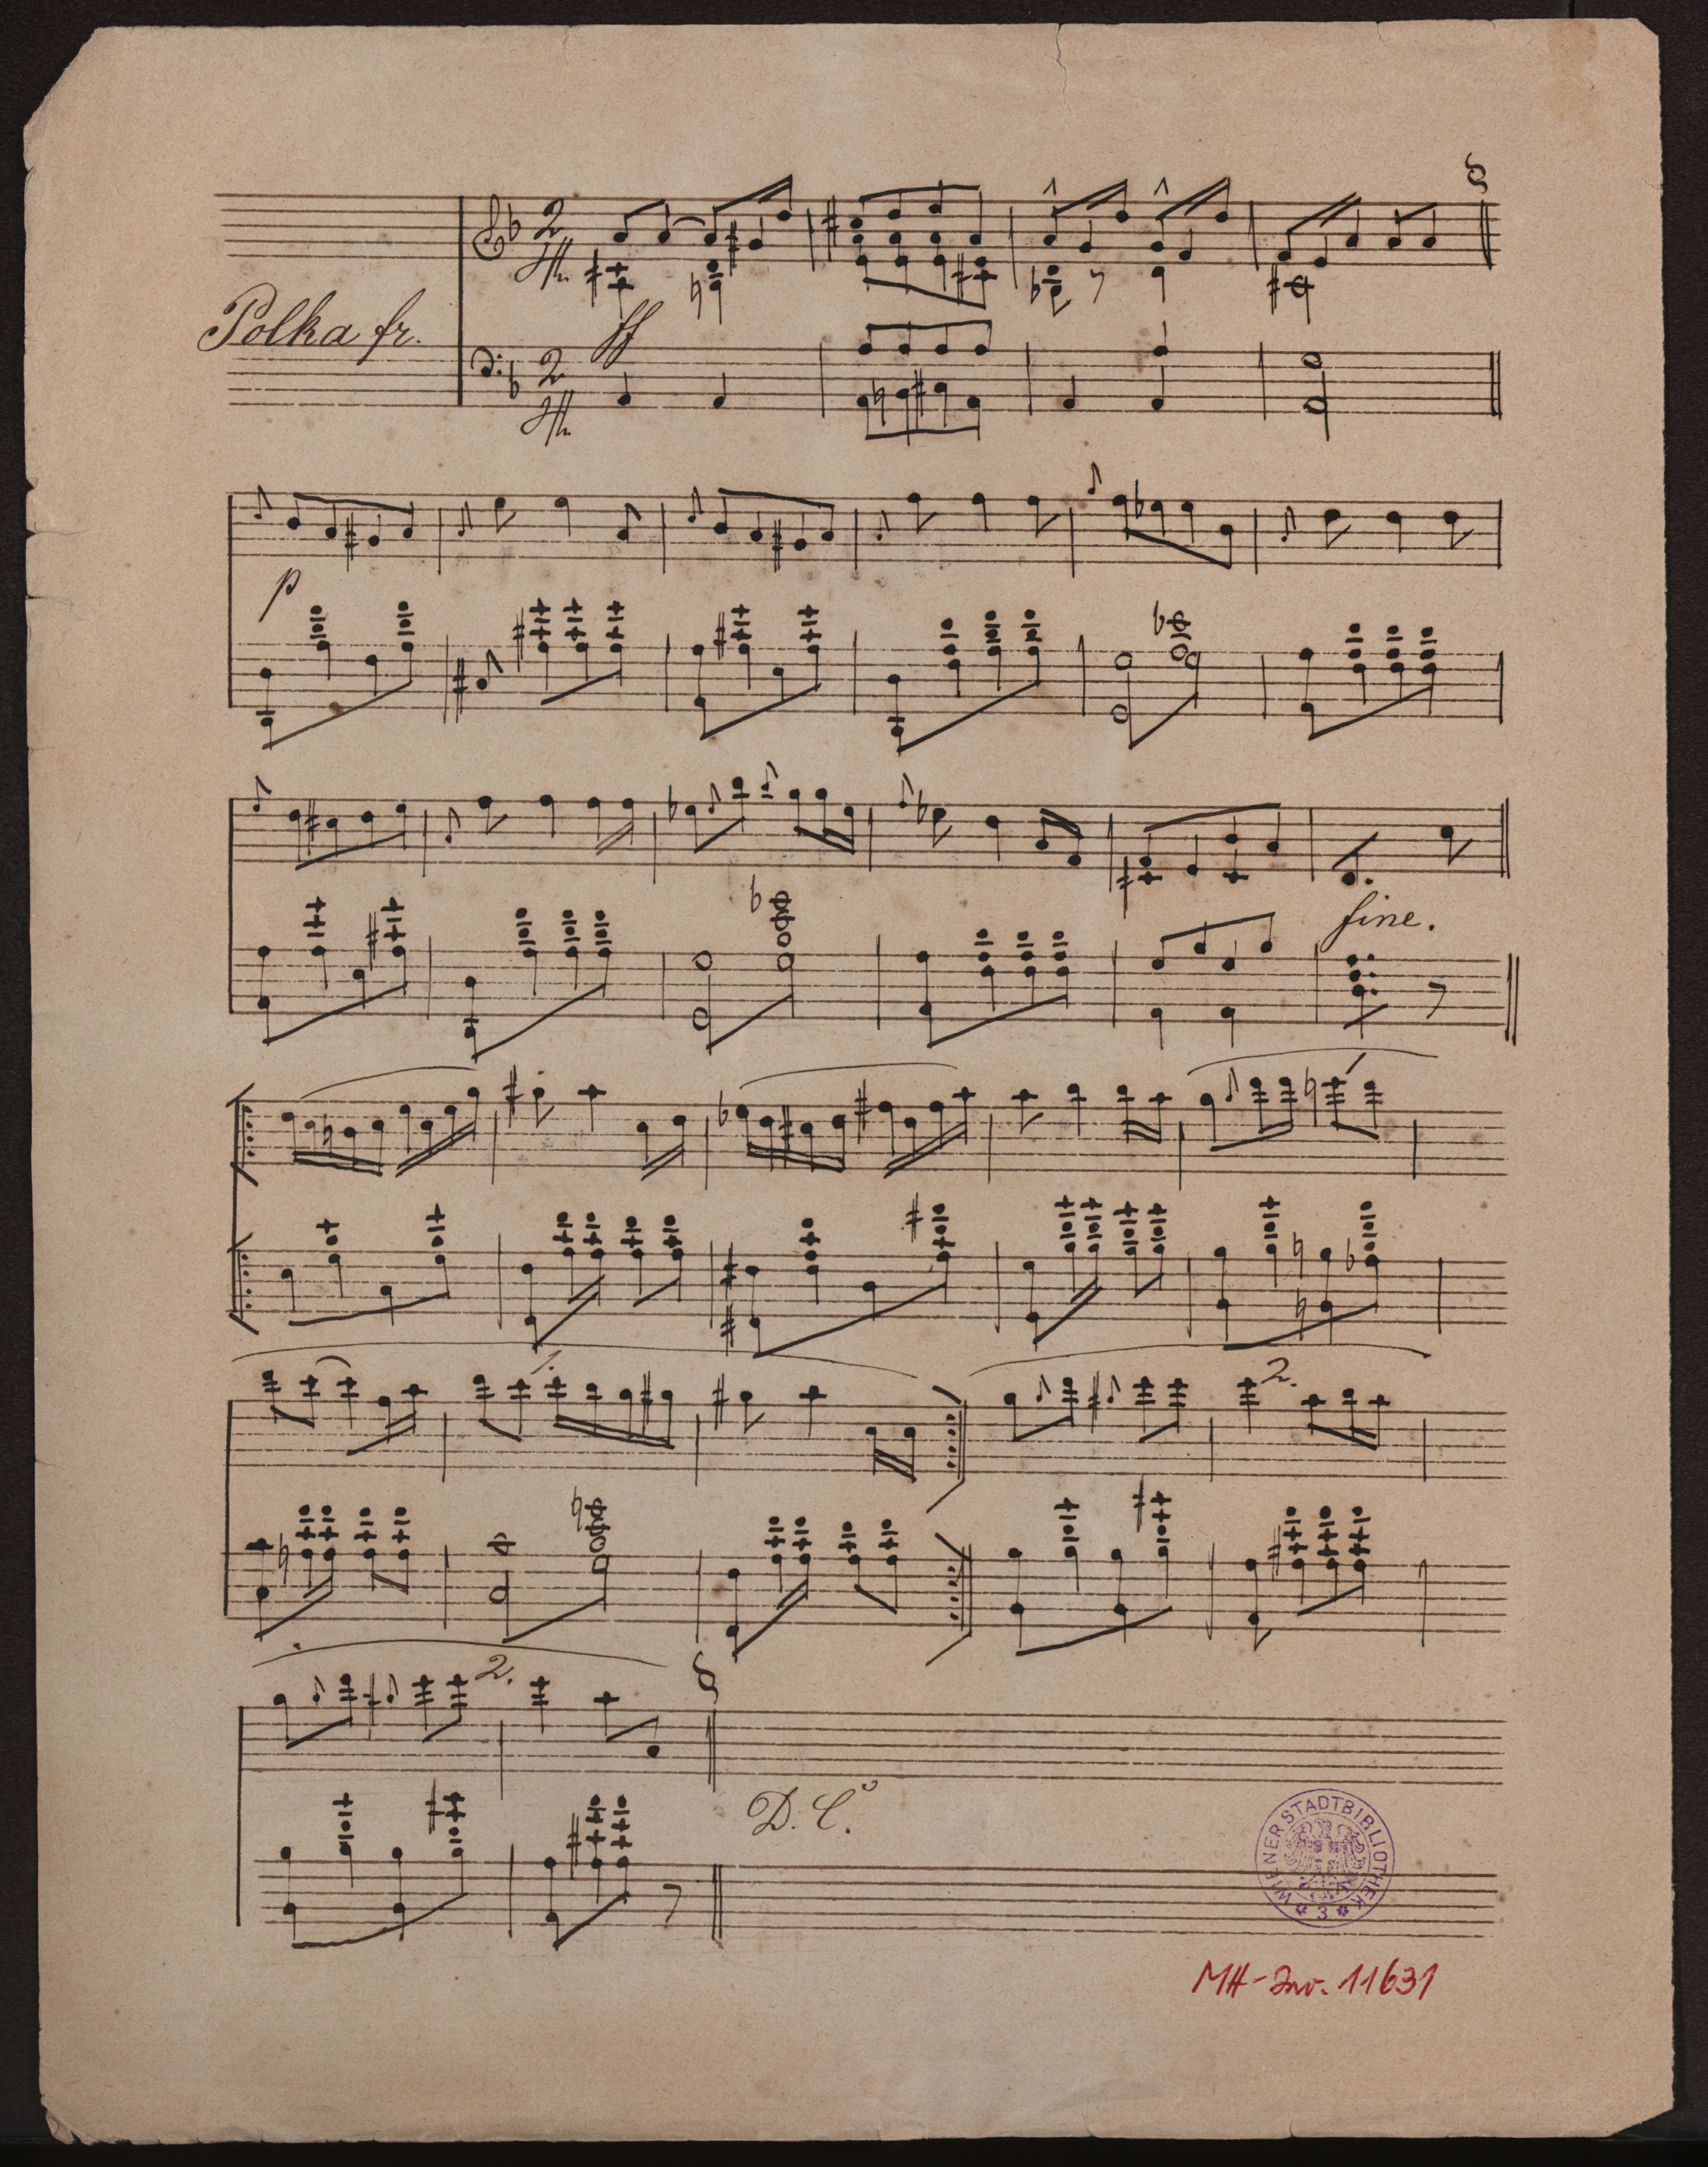 Polka fr.
ff
p
fine.
1.
2.
2.
D. C.º
WIENER STADTBIBLIOTHEK
* 3 *
MH-Inv. 11631